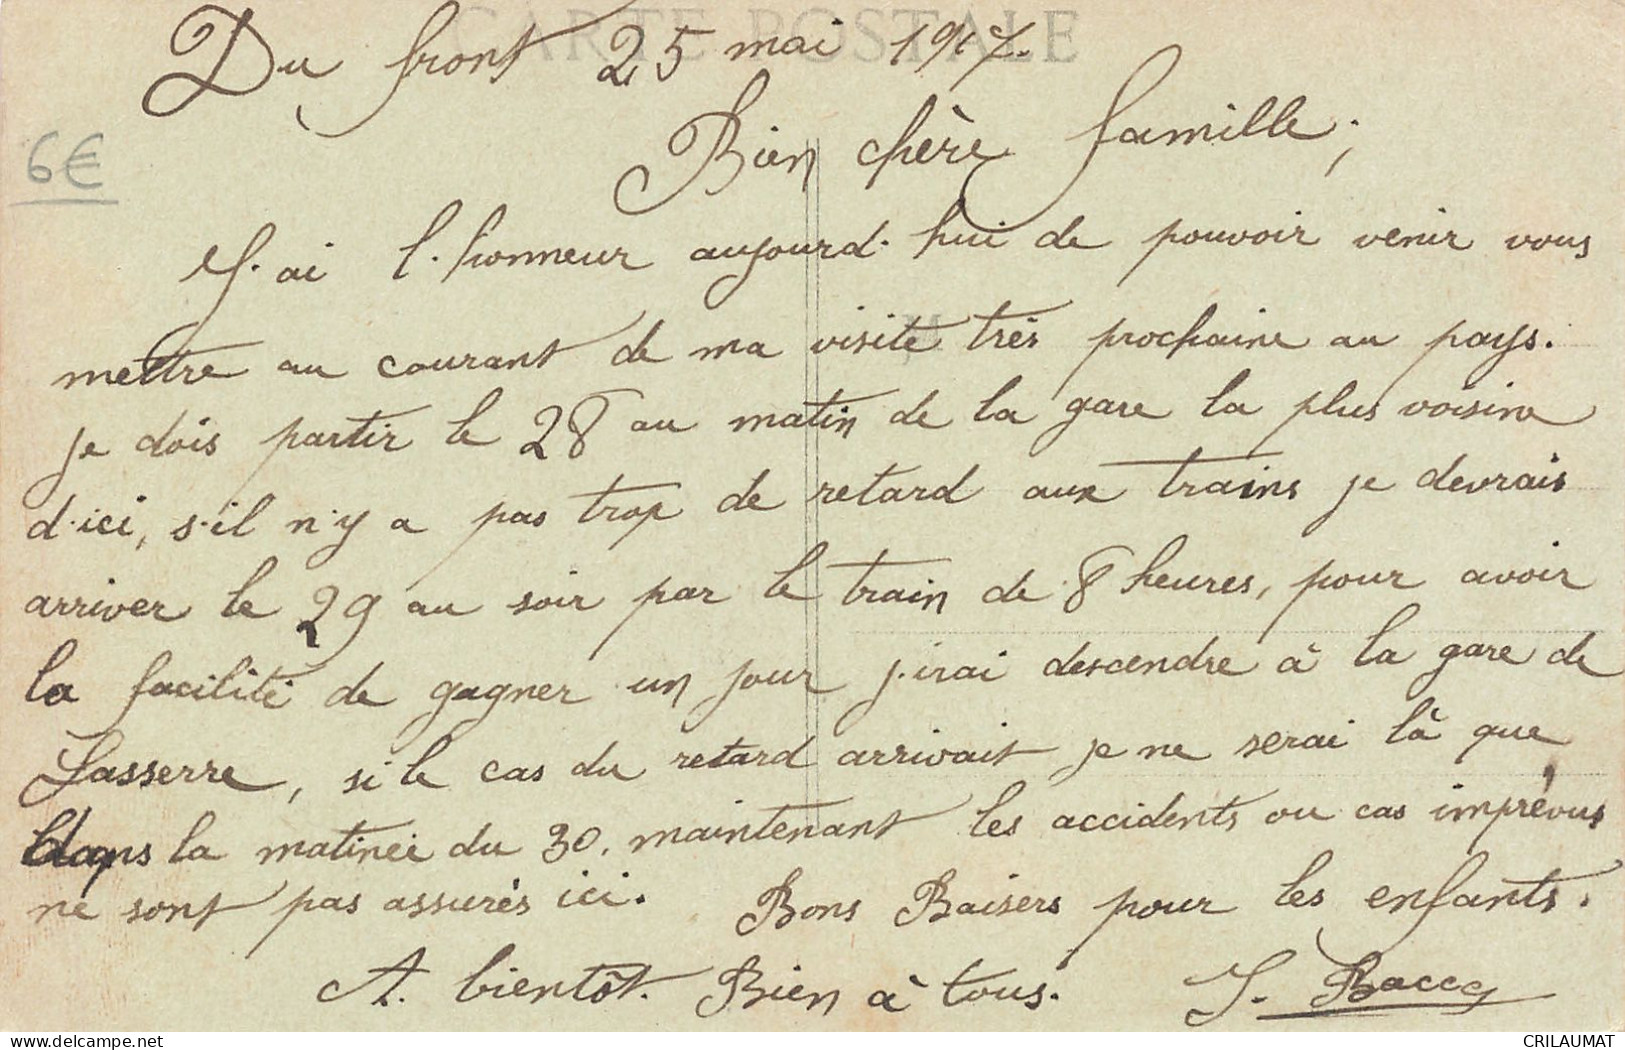 CARTE POSTALE
Du front 25 mai 1917.
6€
Bien chère famille,
J'ai l'honneur aujourd'hui de pouvoir venir vous
mettre au courant de ma visite très prochaine au pays.
je dois partir le 28 au matin de la gare la plus voisine
d'ici, s'il n'y a pas trop de retard aux trains je devrais
arriver le 29 au soir par le train de 8 heures, pour avoir
la facilité de gagner un jour j'irai descendre à la gare de
Lasserre, si le cas du retard arrivait je ne serai là que
dans la matinée du 30. maintenant les accidents ou cas imprévus
ne sont pas assurés ici. Bons Baisers pour les enfants.
A bientôt. Bien à tous. J.
CRILAUMAT
delcampe.net